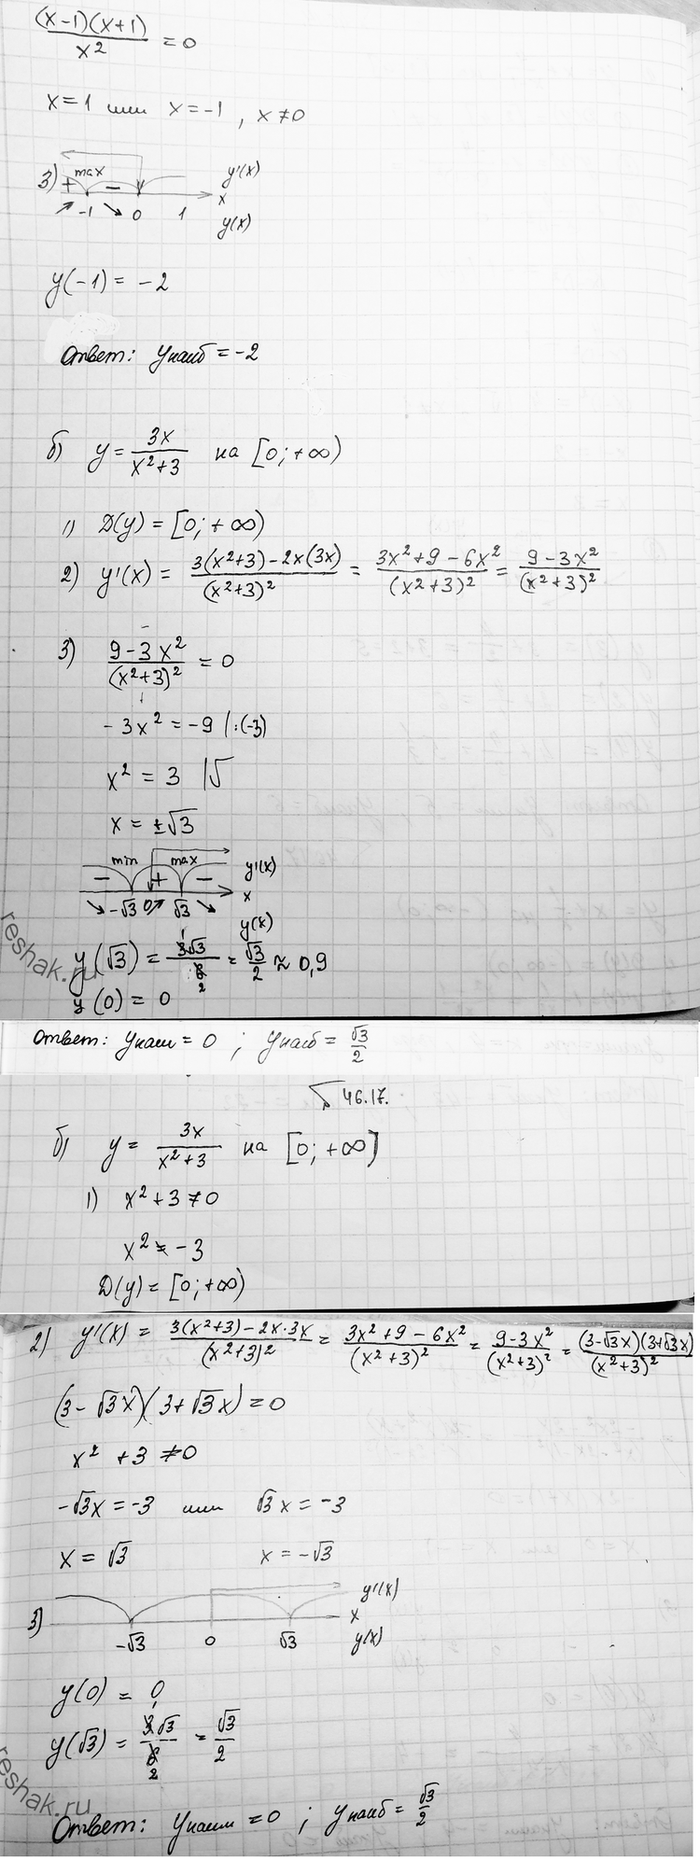 (x-1)(x+1)/x² = 0
x=1 или x=-1, x≠0
3) + max - y'(x)
-1 0 1 x
y(x)
y(-1) = -2
Ответ: yнаиб = -2
б) y = 3x/(x²+3) на [0; +∞)
1) D(y) = [0; +∞)
2) y'(x) = (3(x²+3) - 2x(3x))/(x²+3)² = (3x²+9-6x²)/(x²+3)² = (9-3x²)/(x²+3)²
3) (9-3x²)/(x²+3)² = 0
-3x² = -9 |:(-3)
x² = 3 |√
x = ±√3
min max y'(x)
- + - x
↘ -√3 0 ↗ √3 ↘
y(x)
y(√3) = 3√3/6 = √3/2 ≈ 0,9
y(0) = 0
reshak.ru
Ответ: yнаим = 0 ; yнаиб = √3/2
46.17.
б) y = 3x/(x²+3) на [0; +∞]
1) x²+3 ≠ 0
x² ≠ -3
D(y) = [0; +∞)
2) y'(x) = (3(x²+3) - 2x·3x)/(x²+3)² = (3x²+9-6x²)/(x²+3)² = (9-3x²)/(x²+3)² = (3-√3x)(3+√3x)/(x²+3)²
(3-√3x)(3+√3x) = 0
x² + 3 ≠ 0
-√3x = -3 или √3x = -3
x = √3 x = -√3
3) y'(x)
x
-√3 0 √3 y(x)
y(0) = 0
y(√3) = 3√3/6 = √3/2
reshak.ru
Ответ: yнаим = 0 ; yнаиб = √3/2